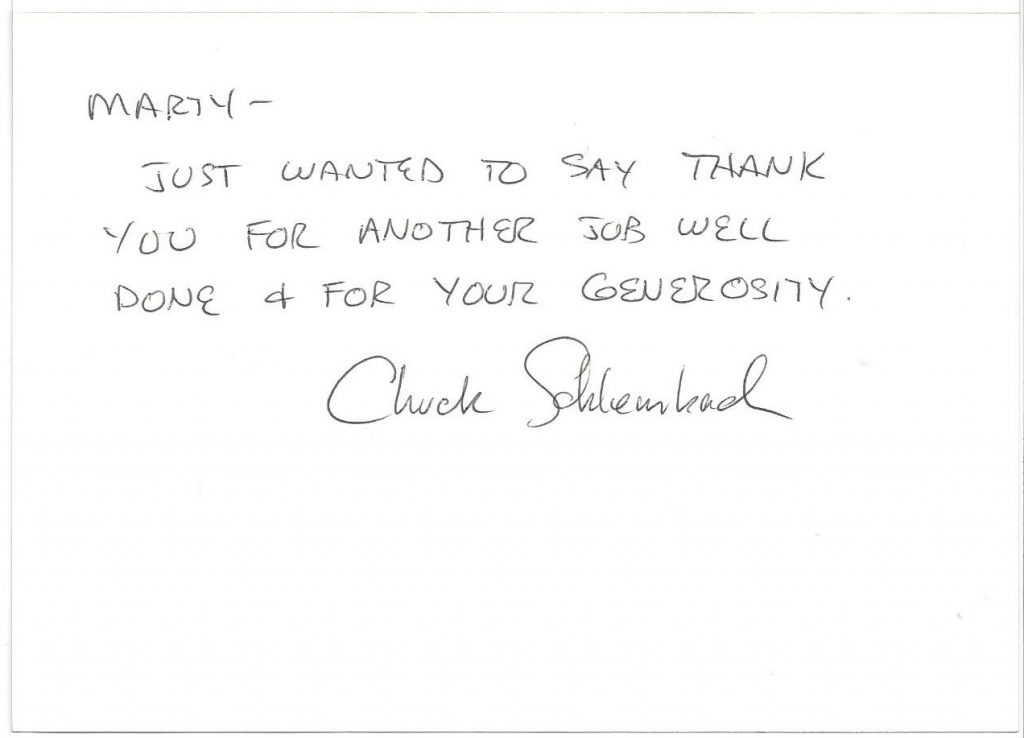 MARTY —
JUST WANTED TO SAY THANK
YOU FOR ANOTHER JOB WELL
DONE & FOR YOUR GENEROSITY.
Chuck